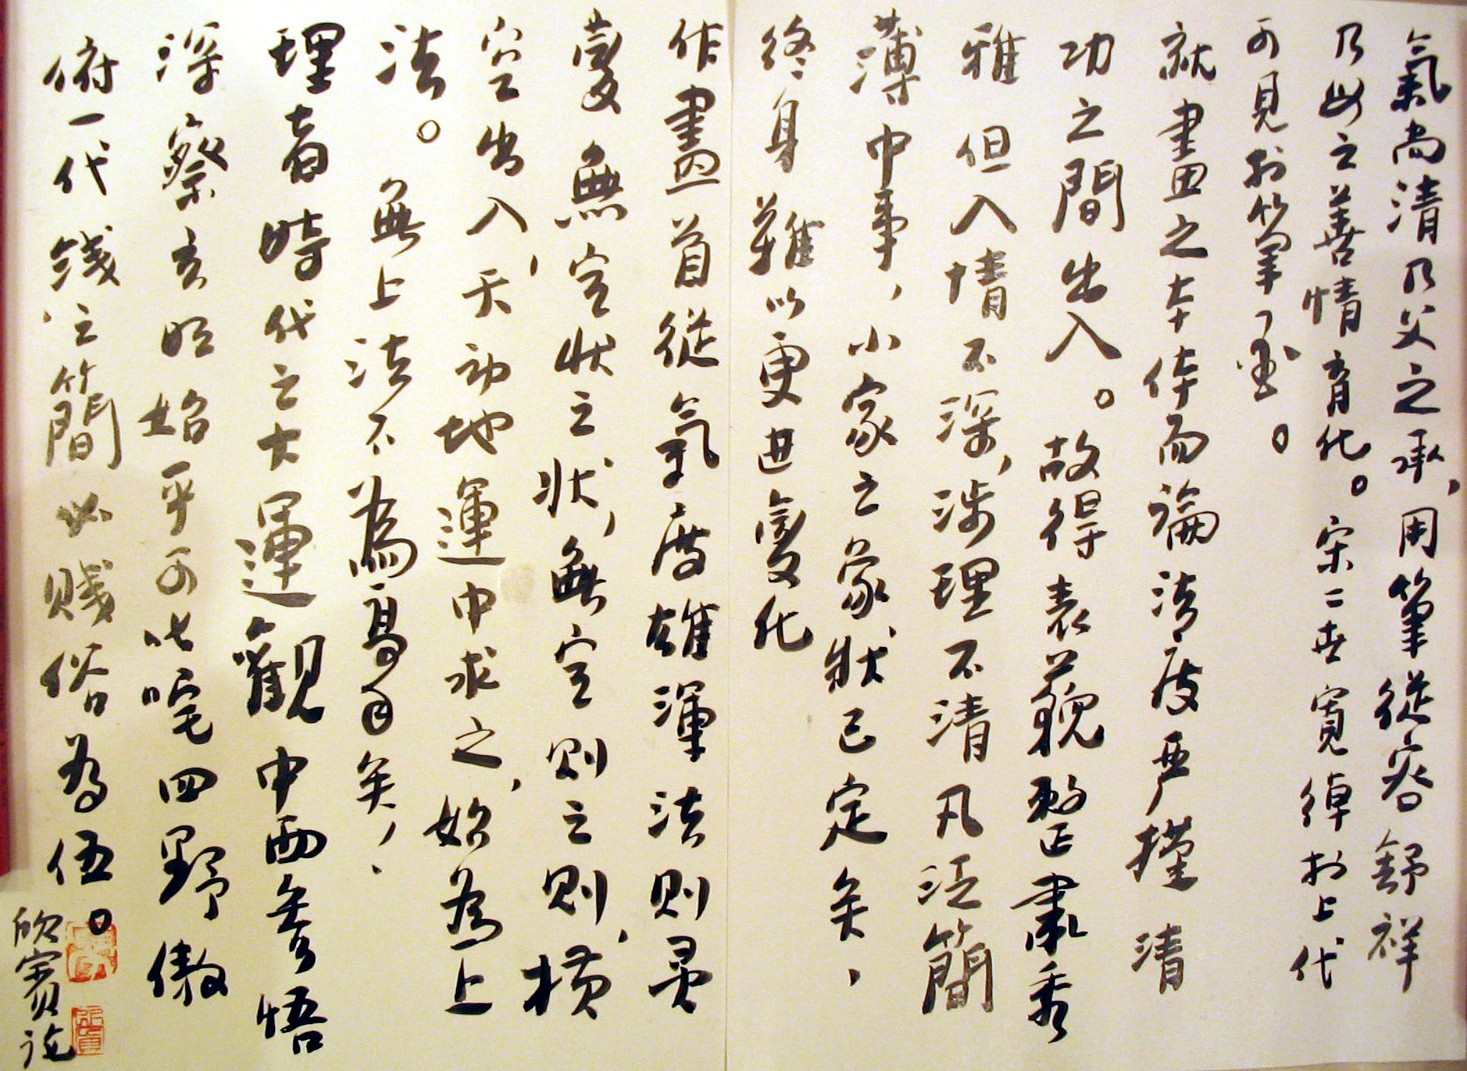 氣尚清乃父之承，用筆從容舒祥
乃母之善情育化。宋二世寬綽於上代
可見於筆墨。
就畫之本体而論法度严槿清
功之間出入。故得表藐整肅秀
雅但入情不深，涉理不清凡泛簡
薄中事，小家之家狀已定矣，
終身難以更进變化
作畫首從氣度雄渾法則灵
變無定狀之狀，無定則之則，橫
空出入，天动地運中求之，始為上
法。無上法不為高手矣，
理者時代之大運觀中西參悟
深察玄旺始乎可叱咤四野傲
俯一代，錢之簡必賤俗為伍。
欣賓